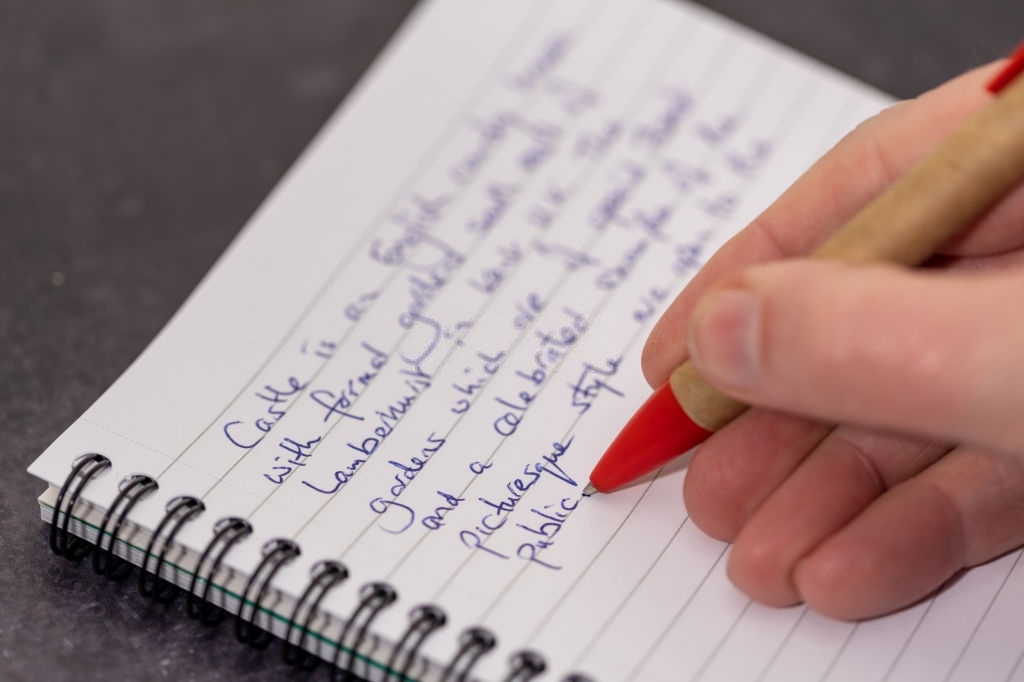 Castle is an English
with formal gardens south east of
Lamberhurst in Kent U.K. The
gardens which are of special
and a celebrated example of the
picturesque style are open to the
public